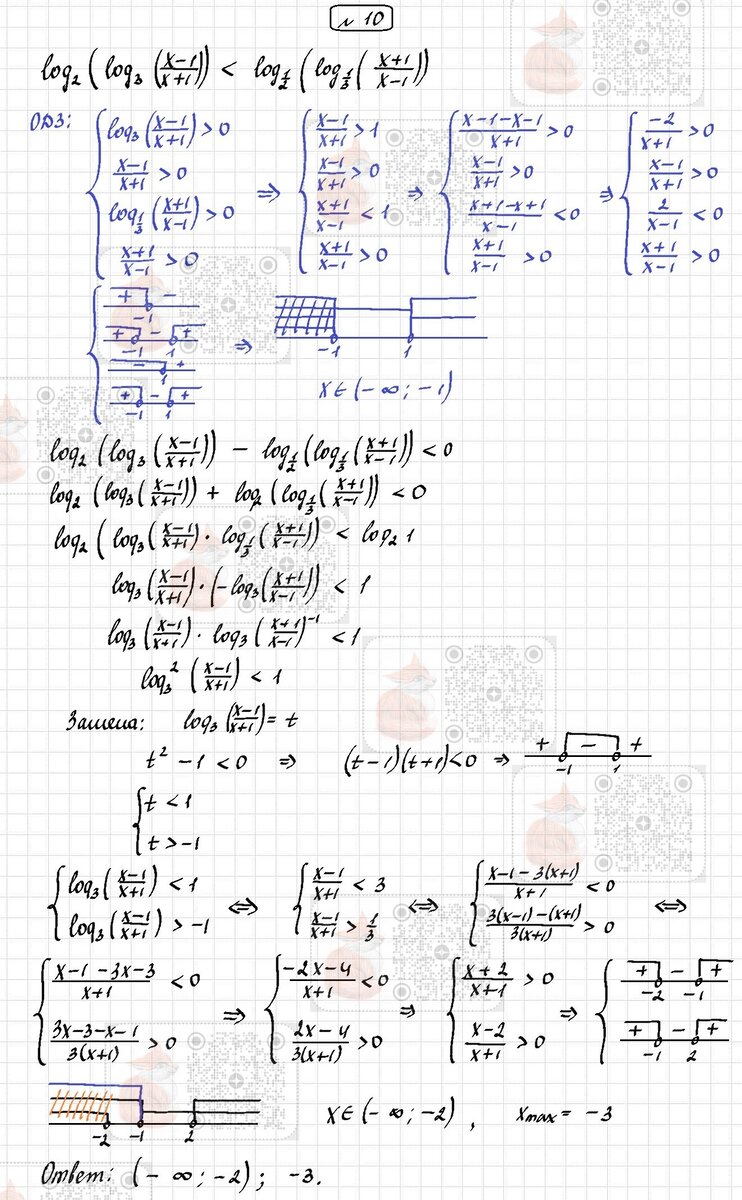 № 10
log₂(log₃((x−1)/(x+1))) < log_{1/2}(log_{1/3}((x+1)/(x−1)))
ОДЗ: { log₃((x−1)/(x+1)) > 0 ⇒ { (x−1)/(x+1) > 1 ⇒ { (x−1−x−1)/(x+1) > 0 ⇒ { −2/(x+1) > 0
(x−1)/(x+1) > 0 (x−1)/(x+1) > 0 (x−1)/(x+1) > 0 (x−1)/(x+1) > 0
log_{1/3}((x+1)/(x−1)) > 0 (x+1)/(x−1) < 1 (x+1−x+1)/(x−1) < 0 2/(x−1) < 0
(x+1)/(x−1) > 0 (x+1)/(x−1) > 0 (x+1)/(x−1) > 0 (x+1)/(x−1) > 0
{ + −
−1
+ − + ⇒
−1 1 −1 1
− +
1
+ − + x∈(−∞; −1)
−1 1
log₂(log₃((x−1)/(x+1))) − log_{1/2}(log_{1/3}((x+1)/(x−1))) < 0
log₂(log₃((x−1)/(x+1))) + log₂(log_{1/3}((x+1)/(x−1))) < 0
log₂(log₃((x−1)/(x+1)) · log_{1/3}((x+1)/(x−1))) < log₂ 1
log₃((x−1)/(x+1)) · (−log₃((x+1)/(x−1))) < 1
log₃((x−1)/(x+1)) · log₃((x+1)/(x−1))⁻¹ < 1
log₃²((x−1)/(x+1)) < 1
Замена: log₃((x−1)/(x+1)) = t
t² − 1 < 0 ⇒ (t−1)(t+1) < 0 ⇒ + − +
−1 1
{ t < 1
t > −1
{ log₃((x−1)/(x+1)) < 1 ⇔ { (x−1)/(x+1) < 3 ⇔ { (x−1−3(x+1))/(x+1) < 0 ⇔
log₃((x−1)/(x+1)) > −1 (x−1)/(x+1) > 1/3 (3(x−1)−(x+1))/(3(x+1)) > 0
{ (x−1−3x−3)/(x+1) < 0 ⇒ { (−2x−4)/(x+1) < 0 ⇒ { (x+2)/(x+1) > 0 ⇒ { + − +
−2 −1
(3x−3−x−1)/(3(x+1)) > 0 (2x−4)/(3(x+1)) > 0 (x−2)/(x+1) > 0 + − +
−1 2
−2 −1 2 x∈(−∞; −2), xmax = −3
Ответ: (−∞; −2); −3.